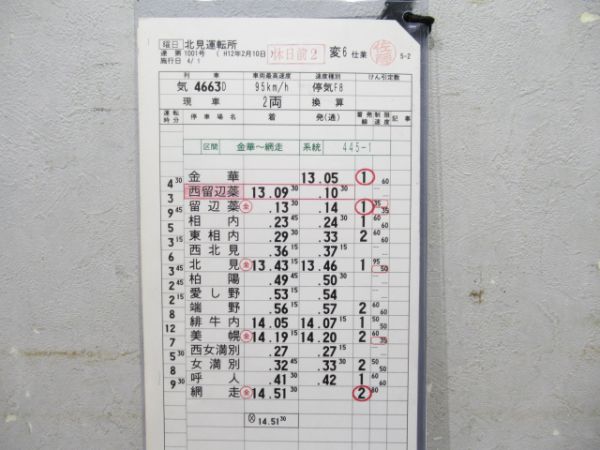 曜日 北見運転所 休日前2 変6 仕業 佐藤 5-2
達 第 1001号 ( H12年2月10日 )
施行日 4/1
列車 車両最高速度 速度種別 けん引定数
気 4663D 95km/h 停気F8
現車 2両 換算
運転時分 停車場名 着 発(通) 着発線 制限速度 記事
区間 金華~網走 系統 445-1
金華 13.05 1 60
4 30 西留辺蘂 13.09 30 .10 30
3 留辺蘂 金 .13 30 .14 1 35 35
9 相内 .23 45 .24 30 1 60 60
5 東相内 .29 30 .33 2 60
3 15 西北見 .36 15 .37 15
6 北見 金 13.43 15 13.46 1 95 50
3 45 柏陽 .49 45 .50 30
3 愛し野 .53 .54
2 15 端野 .56 15 .57 2 60 60
8 緋牛内 14.05 14.07 15 1 50 50
12 美幌 金 14.19 15 14.20 2 60 35
7 西女満別 .27 .27 15
5 30 女満別 .32 45 .33 30 2 50 50
8 呼人 .41 30 .42 1 60 60
9 30 網走 金 14.51 30 2 80
⊗ 14.51 30